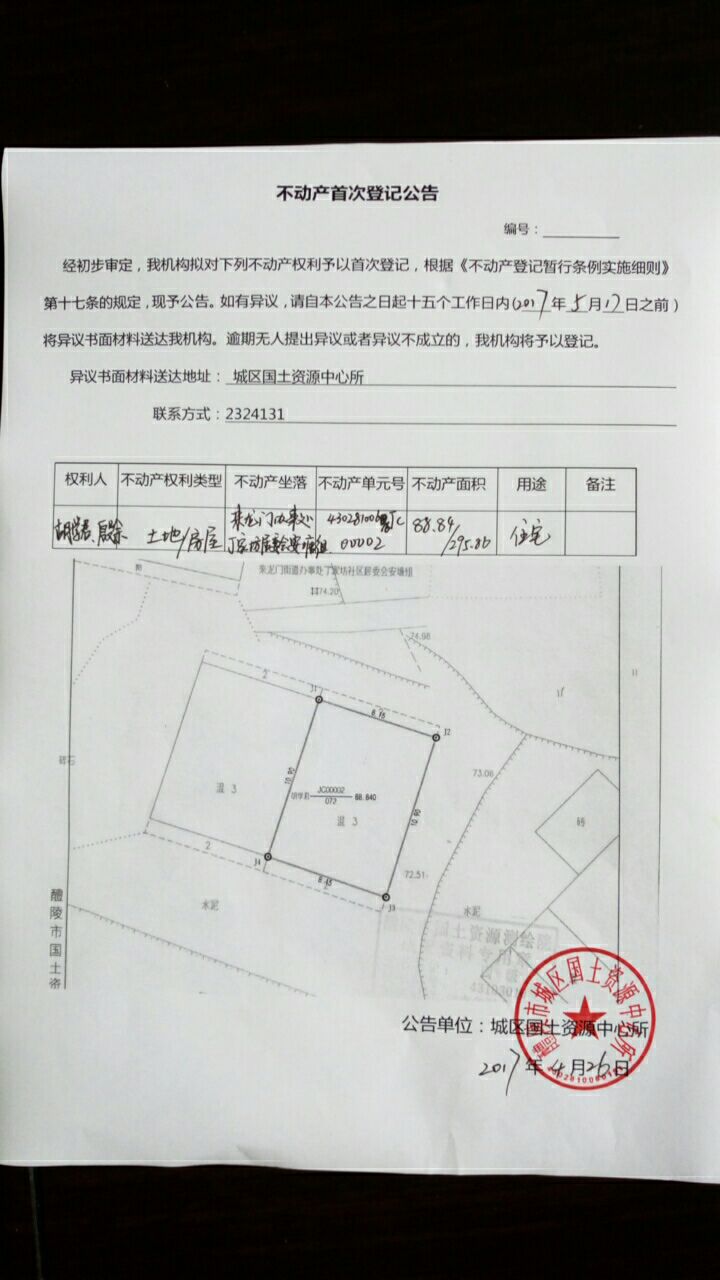 不动产首次登记公告
编号：
经初步审定，我机构拟对下列不动产权利予以首次登记，根据《不动产登记暂行条例实施细则》
第十七条的规定，现予公告。如有异议，请自本公告之日起十五个工作日内（2017年5月17日之前）
将异议书面材料送达我机构。逾期无人提出异议或者异议不成立的，我机构将予以登记。
异议书面材料送达地址：城区国土资源中心所
联系方式：2324131
权利人 不动产权利类型 不动产坐落 不动产单元号 不动产面积 用途 备注
土地/房屋 来龙门办事处 88.84/295.86 住宅
00002
来龙门街道办事处丁家坊社区居委会安塘组
74.20
74.98
2
J1
8.15
J2
73.08
砖
10.90
混 3
胡学君 JC00002 88.840
072
混 3
10.90
砖
2
J4
8.15
72.51
J3
水泥
水泥
醴陵市国土资
国土资源测绘院
资料专用章
公告单位：城区国土资源中心所
2017年4月26日
醴陵市城区国土资源中心所